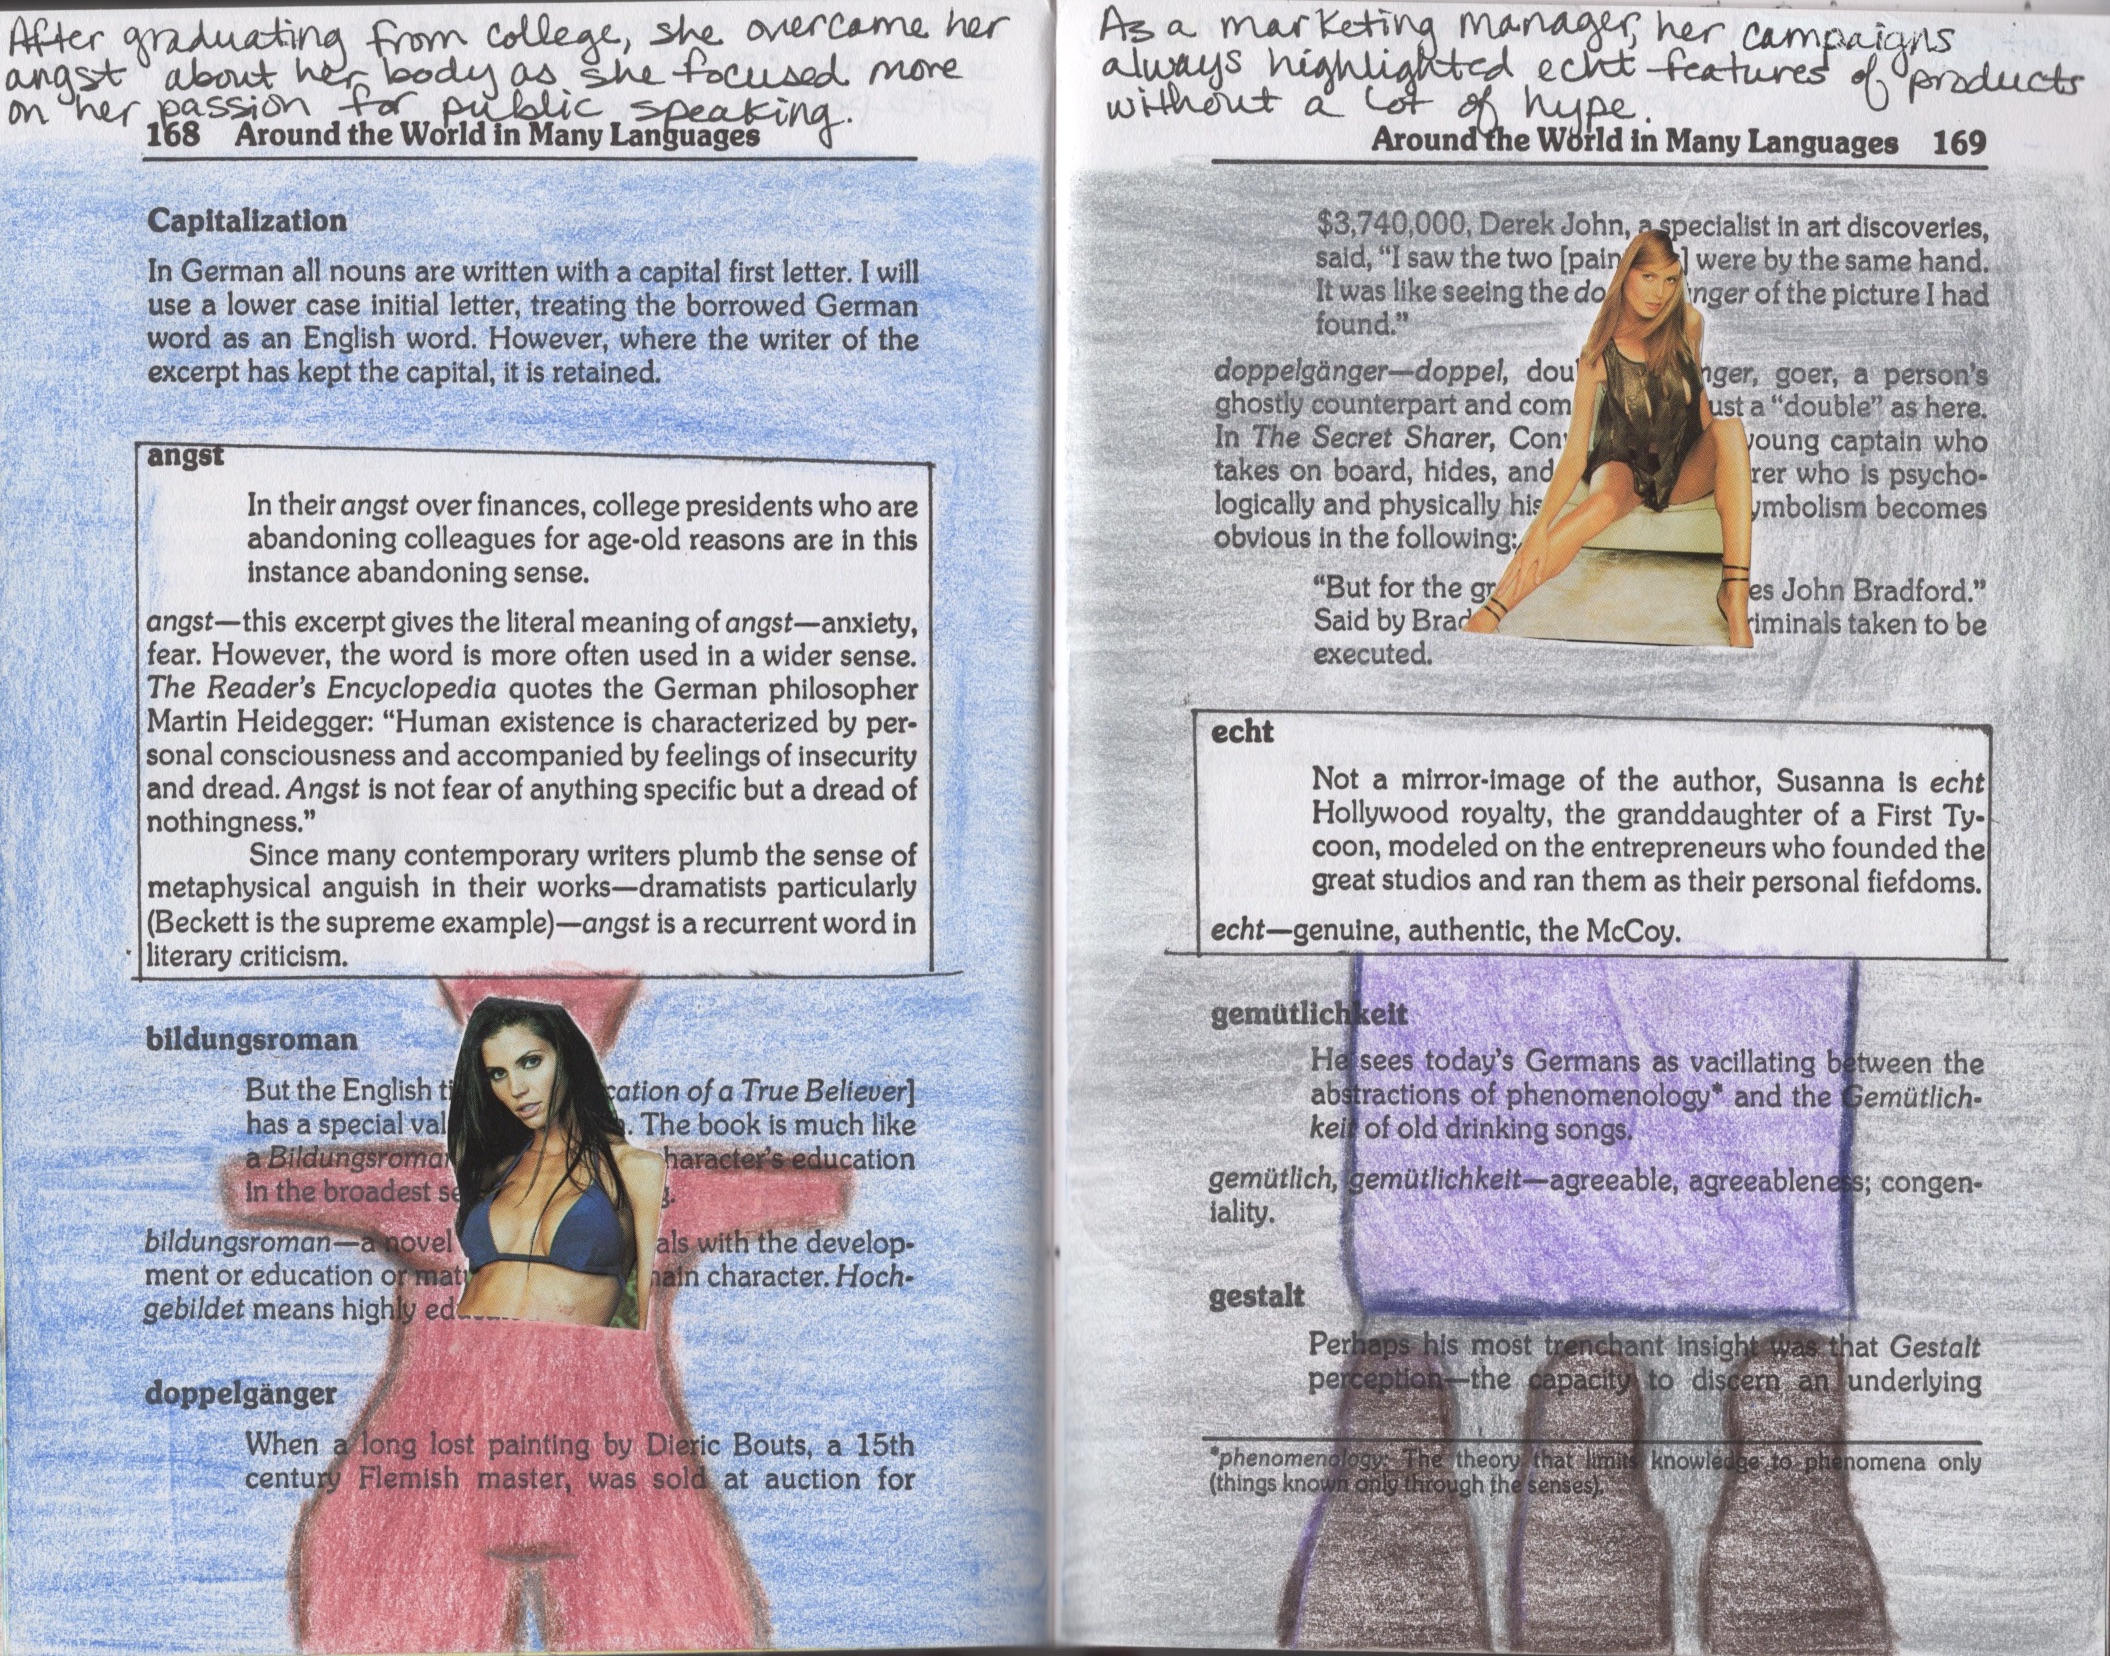 After graduating from college, she overcame her
angst about her body as she focused more
on her passion for public speaking.
168 Around the World in Many Languages
Capitalization
In German all nouns are written with a capital first letter. I will
use a lower case initial letter, treating the borrowed German
word as an English word. However, where the writer of the
excerpt has kept the capital, it is retained.
angst
In their angst over finances, college presidents who are
abandoning colleagues for age-old reasons are in this
instance abandoning sense.
angst—this excerpt gives the literal meaning of angst—anxiety,
fear. However, the word is more often used in a wider sense.
The Reader's Encyclopedia quotes the German philosopher
Martin Heidegger: “Human existence is characterized by per-
sonal consciousness and accompanied by feelings of insecurity
and dread. Angst is not fear of anything specific but a dread of
nothingness.”
Since many contemporary writers plumb the sense of
metaphysical anguish in their works—dramatists particularly
(Beckett is the supreme example)—angst is a recurrent word in
literary criticism.
bildungsroman
But the English of a True Believer]
has a special The book is much like
a Bildungsroman character's education
in the broadest
bildungsroman—a novel with the develop-
ment or education or main character. Hoch-
gebildet means highly
doppelgänger
When a long lost painting by Dieric Bouts, a 15th
century Flemish master, was sold at auction for
As a marketing manager, her campaigns
always highlighted echt features of products
without a lot of hype.
Around the World in Many Languages 169
$3,740,000, Derek John, a specialist in art discoveries,
said, “I saw the two were by the same hand.
It was like seeing the of the picture I had
found.”
doppelgänger—doppel, goer, a person's
ghostly counterpart and a “double” as here.
In The Secret Sharer, young captain who
takes on board, hides, and who is psycho-
logically and physically his symbolism becomes
obvious in the following:
“But for the John Bradford.”
Said by criminals taken to be
executed.
echt
Not a mirror-image of the author, Susanna is echt
Hollywood royalty, the granddaughter of a First Ty-
coon, modeled on the entrepreneurs who founded the
great studios and ran them as their personal fiefdoms.
echt—genuine, authentic, the McCoy.
gemütlichkeit
He sees today's Germans as vacillating between the
abstractions of phenomenology* and the Gemütlich-
keit of old drinking songs.
gemütlich, gemütlichkeit—agreeable, agreeableness; congen-
iality.
gestalt
Perhaps his most trenchant insight was that Gestalt
perception—the capacity to discern an underlying
*phenomenology: The theory that limits knowledge to phenomena only
(things known only through the senses).